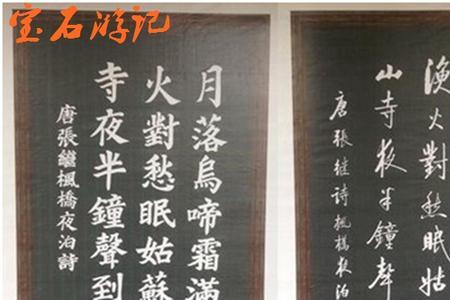 宝石游记
月落烏啼霜滿
火對愁眠姑蘇
寺夜半鐘聲到
唐張繼楓橋夜泊詩
漁火對愁眠姑
山寺夜半鐘聲
唐張继诗枫橋夜泊